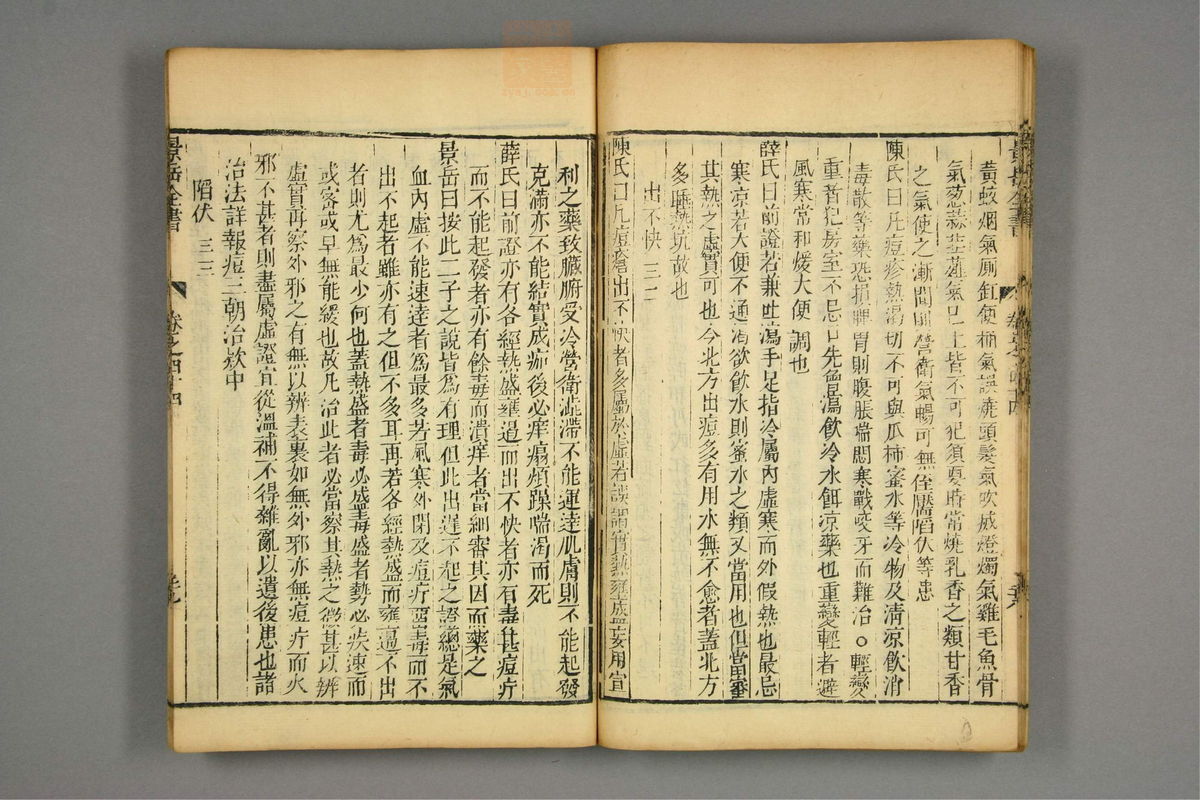 黃蚊烟氣厠缸便桶氣誤燒頭髮氣吹滅燈燭氣雞毛魚骨
氣葱蒜韭薤氣已上皆不可犯須要時常燒乳香之類甘香
之氣使之漸聞則營衛氣暢可無倒靨陷伏等患
陳氏曰凡痘疹熱渴切不可與瓜柿蜜水等冷物及清涼飲消
毒散等藥恐損脾胃則腹脹喘悶寒戰咬牙而難治○輕變
重者犯房室不忌口先曾瀉飲冷水餌涼藥也重變輕者避
風寒常和煖大便調也
薛氏曰前證若兼吐瀉手足指冷屬內虛寒而外假熱也最忌
寒凉若大便不通渴欲飲水則蜜水之類又當用也但當審
其熱之虛實可也今北方出痘多有用水無不愈者蓋北方
多睡熱炕故也
出不快 三二
陳氏曰凡痘瘡出不快者多屬於虛若誤謂實熱壅盛妄用宣
利之藥致臟腑受冷營衛澁滯不能運達肌膚則不能起發
充滿亦不能結實成痂後必痒塌煩躁喘渴而死
薛氏曰前證亦有各經熱盛壅遏而出不快者亦有毒甚痘疔
而不能起發者亦有餘毒而潰痒者當細審其因而藥之
景岳曰按此二子之說皆為有理但此出遲不起之證總是氣
血內虛不能速達者為最多若風寒外閉及痘疔惡毒而不
出不起者雖亦有之但不多耳再若各經熱盛而壅遏不出
者則尤為最少何也蓋熱盛者毒必盛毒盛者勢必疾速而
或密或早無能緩也故凡治此者必當察其熱之微甚以辨
虛實再察外邪之有無以辨表裏如無外邪亦無痘疔而火
邪不甚者則盡屬虛證宜從溫補不得雜亂以遺後患也諸
治法詳報痘三朝治欵中
陷伏 三三
景岳全書
卷之四十四